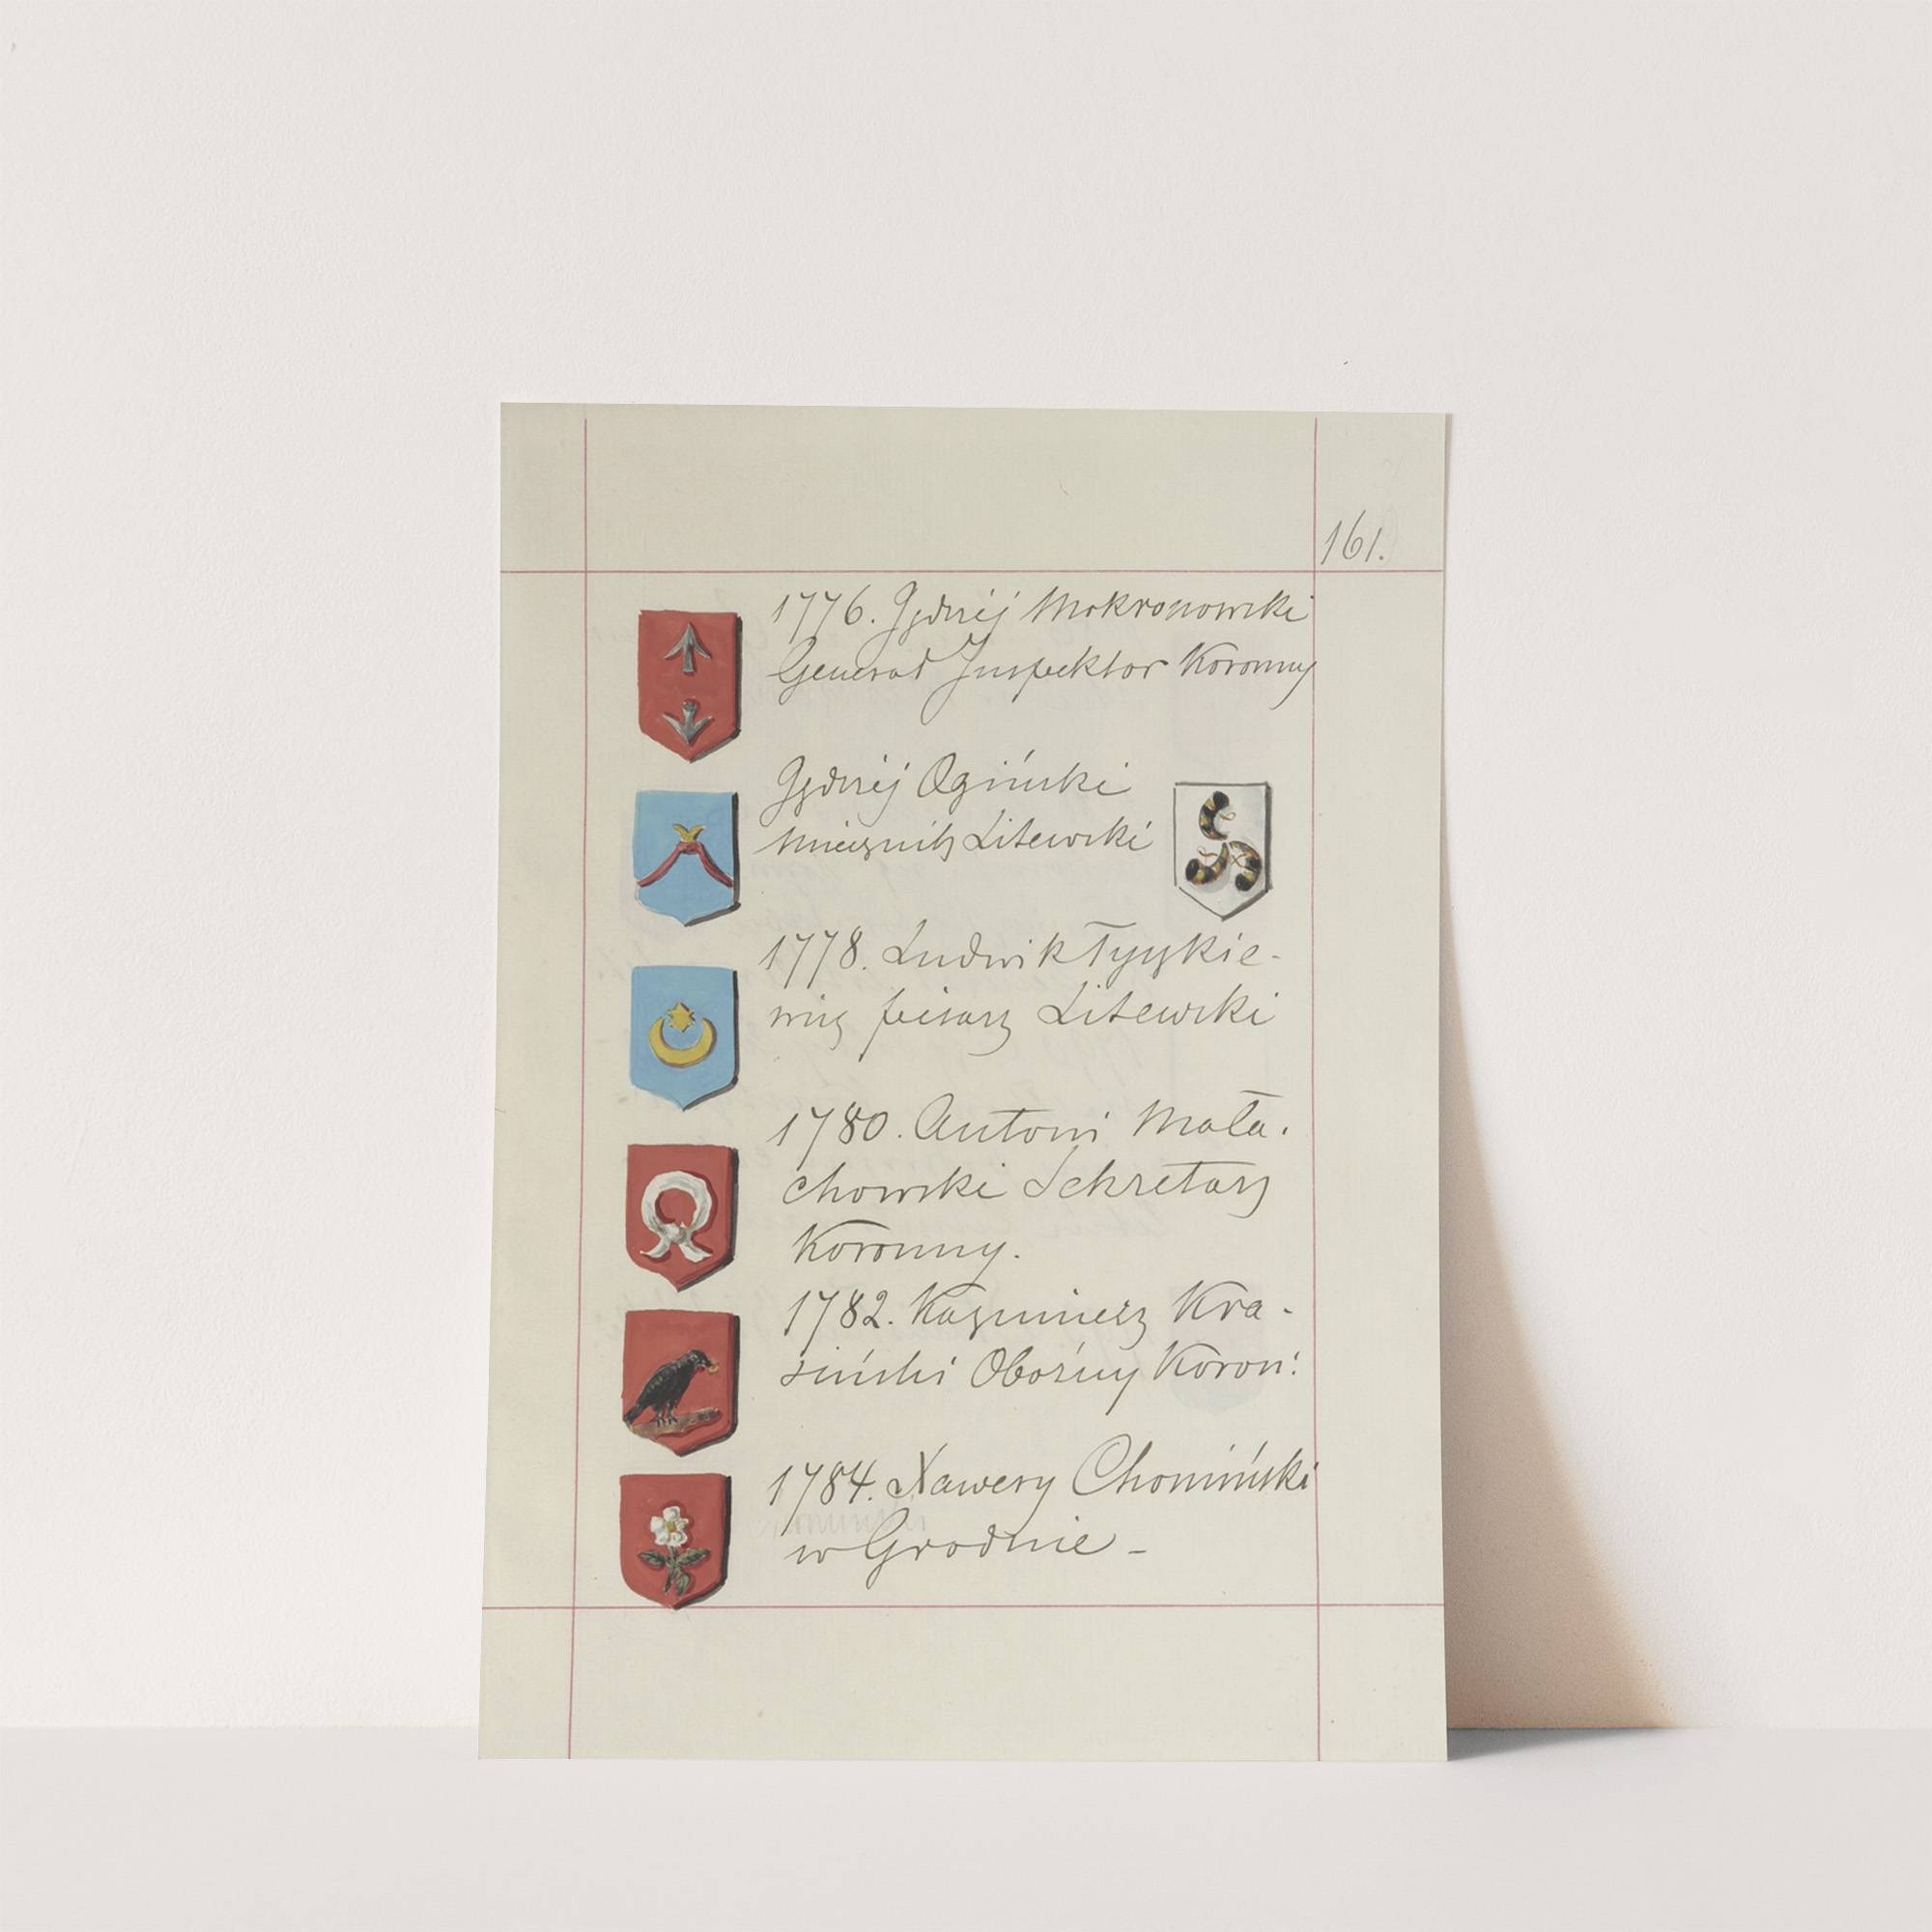 161.
1776. Jędrzéj Mokronowski
Generał Inspektor Koronny
Jędrzéj Ogiński
Miecznik Litewski
1778. Ludwik Tyszkie-
wicz pisarz Litewski
1780. Antoni Mała-
chowski Sekretarz
Koronny.
1782. Kazimierz Kra-
siński Oboźny Koron:
1784. Xawery Chomiński
w Grodnie -